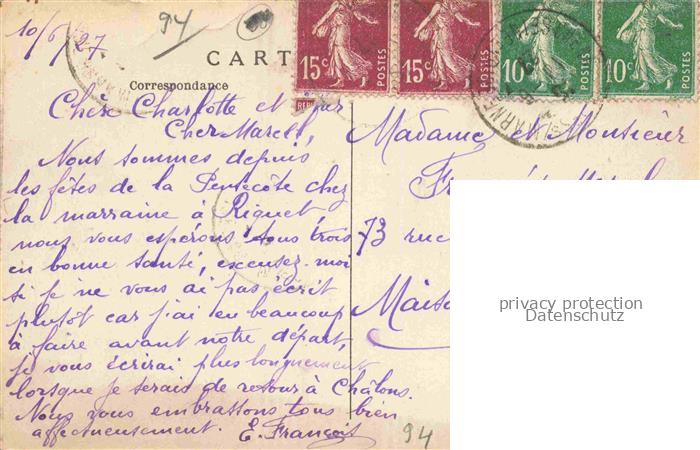 10/6/27
94
CART
Correspondance
15c POSTES
15c POSTES
10c POSTES
10c POSTES
Chère Charlotte et
Cher Marcel,
Nous sommes depuis
les fêtes de la Pentecôte chez
la marraine à Riquet,
nous vous espérons tous trois
en bonne santé, excusez-moi
si je ne vous ai pas écrit
plutôt car j'ai eu beaucoup
à faire avant notre départ,
je vous écrirai plus longuement
lorsque je serais de retour à Châlons.
Nous vous embrassons tous bien
affectueusement. E. François
94
Madame et Monsieur
73 rue
privacy protection
Datenschutz